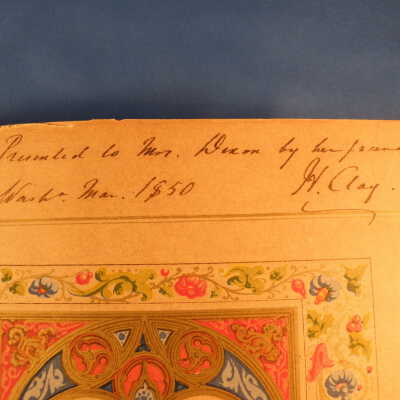 Presented to Mrs. Dixon by her friend
Washn. Mar. 1850 H. Clay.